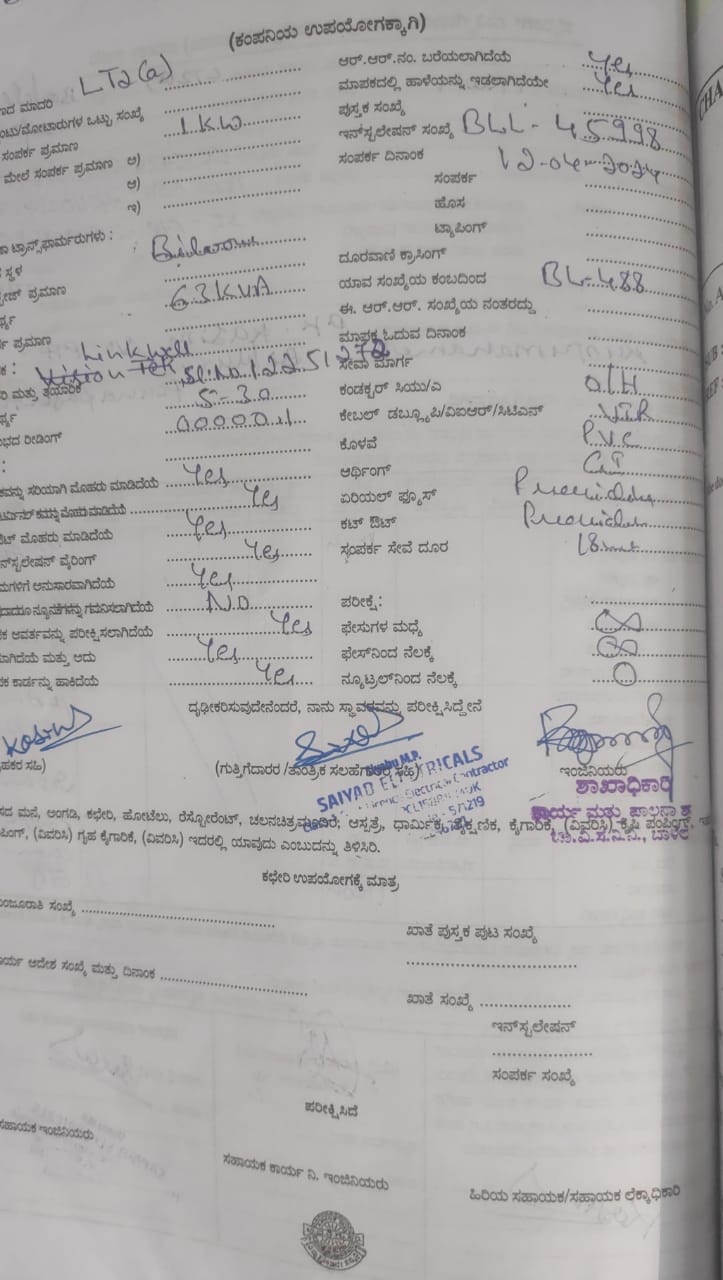 (ಕಂಪನಿಯ ಉಪಯೋಗಕ್ಕಾಗಿ)
ಮಾದರಿ LT2(a) ಆರ್.ಆರ್.ನಂ. ಬರೆಯಲಾಗಿದೆಯೆ Yes
ಮಾಪಕದಲ್ಲಿ ಹಾಳೆಯನ್ನು ಇಡಲಾಗಿದೆಯೇ Yes
ಒಟ್ಟು ಸಂಖ್ಯೆ ಪುಸ್ತಕ ಸಂಖ್ಯೆ
ಸಂಪರ್ಕ ಪ್ರಮಾಣ 1.KW ಇನ್‌ಸ್ಟಲೇಷನ್ ಸಂಖ್ಯೆ BLL-45998
ಮೇಲೆ ಸಂಪರ್ಕ ಪ್ರಮಾಣ ಅ) ಸಂಪರ್ಕ ದಿನಾಂಕ 12-04-2024
ಆ) ಸಂಪರ್ಕ
ಇ) ಹೊಸ
ಟ್ಯಾಪಿಂಗ್
ಟ್ರಾನ್ಸ್‌ಫಾರ್ಮರುಗಳು :
ಸ್ಥಳ ದೂರವಾಣಿ ಕ್ರಾಸಿಂಗ್
ಪ್ರಮಾಣ 63KVA ಯಾವ ಸಂಖ್ಯೆಯ ಕಂಬದಿಂದ BL-488
ಈ. ಆರ್.ಆರ್. ಸಂಖ್ಯೆಯ ನಂತರದ್ದು
ಪ್ರಮಾಣ ಮಾಪಕ ಓದುವ ದಿನಾಂಕ
Linkwell
Vision Tek Sl.No.12251272 ಸೇವಾ ಮಾರ್ಗ
ಮತ್ತು ತಯಾರಿಕೆ 5-30 ಕಂಡಕ್ಟರ್ ಸಿಯು/ಎ O/H
ರೀಡಿಂಗ್ 00000.1 ಕೇಬಲ್ ಡಬ್ಲ್ಯೂಪಿ/ವಿಐಆರ್/ಸಿಟಿಎಸ್ VIR
ಕೊಳವೆ P.V.C
ಸರಿಯಾಗಿ ಮೊಹರು ಮಾಡಿದೆಯೆ Yes ಆರ್ಥಿಂಗ್ G.I
ಮೊಹರು ಮಾಡಿದೆಯೆ Yes ಏರಿಯಲ್ ಫ್ಯೂಸ್
ಮೊಹರು ಮಾಡಿದೆಯೆ Yes ಕಟ್ ಔಟ್
ವೈರಿಂಗ್ Yes ಸಂಪರ್ಕ ಸೇವೆ ದೂರ 18.mt
ಅನುಸಾರವಾಗಿದೆಯೆ Yes
ಗಮನಿಸಲಾಗಿದೆಯೆ N.O ಪರೀಕ್ಷೆ:
ಆವರ್ತವನ್ನು ಪರೀಕ್ಷಿಸಲಾಗಿದೆಯೆ Yes ಫೇಸುಗಳ ಮಧ್ಯೆ ∞
ಮತ್ತು ಅದು Yes ಫೇಸ್‌ನಿಂದ ನೆಲಕ್ಕೆ ∞
ಕಾರ್ಡನ್ನು ಹಾಕಿದೆಯೆ Yes ನ್ಯೂಟ್ರಲ್‌ನಿಂದ ನೆಲಕ್ಕೆ 0
ದೃಢೀಕರಿಸುವುದೇನೆಂದರೆ, ನಾನು ಸ್ಥಾವರವನ್ನು ಪರೀಕ್ಷಿಸಿದ್ದೇನೆ
ಸಹಿ) (ಗುತ್ತಿಗೆದಾರರ /ತಾಂತ್ರಿಕ ಸಲಹೆಗಾರರ ಸಹಿ) ಇಂಜಿನಿಯರು
SAIYAD ELECTRICALS ಶಾಖಾಧಿಕಾರಿ
Electrical Contractor ಕಾರ್ಯ ಮತ್ತು ಪಾಲನಾ ಶ
ಮನೆ, ಅಂಗಡಿ, ಕಛೇರಿ, ಹೋಟೆಲು, ರೆಸ್ಟೋರೆಂಟ್, ಚಲನಚಿತ್ರಮಂದಿರ, ಆಸ್ಪತ್ರೆ, ಧಾರ್ಮಿಕ, ಶೈಕ್ಷಣಿಕ, ಕೈಗಾರಿಕೆ, (ವಿವರಿಸಿ) ಕೃಷಿ ಪಂಪಿಂಗ್,
(ವಿವರಿಸಿ) ಗೃಹ ಕೈಗಾರಿಕೆ, (ವಿವರಿಸಿ) ಇದರಲ್ಲಿ ಯಾವುದು ಎಂಬುದನ್ನು ತಿಳಿಸಿರಿ.
ಕಛೇರಿ ಉಪಯೋಗಕ್ಕೆ ಮಾತ್ರ
ಮಂಜೂರಾತಿ ಸಂಖ್ಯೆ ಖಾತೆ ಪುಸ್ತಕ ಪುಟ ಸಂಖ್ಯೆ
ಆದೇಶ ಸಂಖ್ಯೆ ಮತ್ತು ದಿನಾಂಕ ಖಾತೆ ಸಂಖ್ಯೆ
ಇನ್‌ಸ್ಟಲೇಷನ್
ಸಂಪರ್ಕ ಸಂಖ್ಯೆ
ಪರೀಕ್ಷಿಸಿದೆ
ಸಹಾಯಕ ಇಂಜಿನಿಯರು
ಸಹಾಯಕ ಕಾರ್ಯ ನಿ. ಇಂಜಿನಿಯರು
ಹಿರಿಯ ಸಹಾಯಕ/ಸಹಾಯಕ ಲೆಕ್ಕಾಧಿಕಾರಿ